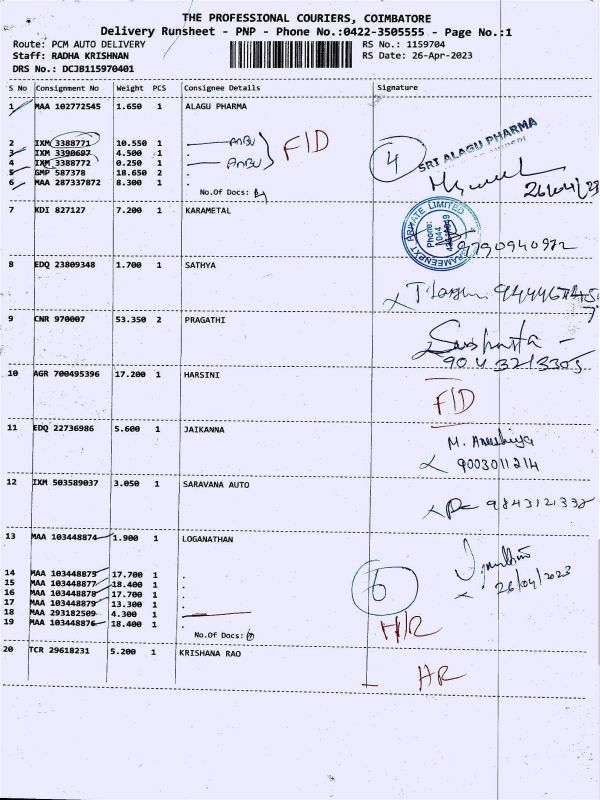 THE PROFESSIONAL COURIERS, COIMBATORE
Delivery Runsheet - PNP - Phone No.:0422-3505555 - Page No.:1
Route: PCM AUTO DELIVERY RS No.: 1159704
Staff: RADHA KRISHNAN RS Date: 26-Apr-2023
DRS No.: DCJB115970401
S No Consignment No Weight PCS Consignee Details Signature
1 MAA 102772545 1.650 1 ALAGU PHARMA
2 IXM 3388771 10.550 1 . ANBU
3 IXM 3390697 4.500 1 . F/D
4 IXM 3388772 0.250 1 . ANBU
5 GMP 587378 18.650 2 .
6 MAA 287337872 8.300 1 .
No.Of Docs: 
4 SRI ALAGU PHARMA
26/04/23
7 KDI 827127 7.200 1 KARAMETAL
PRIVATE LIMITED
Phone:
044
9790940972
8 EDQ 23809348 1.700 1 SATHYA
9 CNR 970007 53.350 2 PRAGATHI
10 AGR 700495396 17.200 1 HARSINI
F/D
11 EDQ 22736986 5.600 1 JAIKANNA
9003011214
12 IXM 503589037 3.050 1 SARAVANA AUTO
13 MAA 103448874 1.900 1 LOGANATHAN
26/04/2023
14 MAA 103448875 17.700 1 .
15 MAA 103448877 18.400 1 .
16 MAA 103448878 17.700 1 .
17 MAA 103448879 13.300 1 .
18 MAA 293182509 4.300 1
19 MAA 103448876 18.400 1 .
6
H/R
No.Of Docs:
20 TCR 29618231 5.200 1 KRISHANA RAO
HR